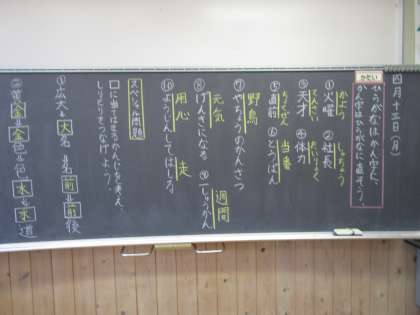 四月十三日(月)
かだい
ひらがなはかん字に、
かん字はひらがなに直そう。
かよう しゃちょう
①火曜 ②社長
てんさい たいりょく
③天才 ④体力
ちょくぜん 当番
⑤直前 ⑥とうばん
野鳥
⑦やちょうのかんさつ
元気 週間
⑧げんきになる ⑨一しゅうかん
用心 走
⑩ようじんしてはしる
スペシャル問題
□に当てはまるかんじを考え、
しりとりをつなげよう。
①広大⇒大名⇒名前⇒前後
②黄金⇒金色⇒色水⇒水道